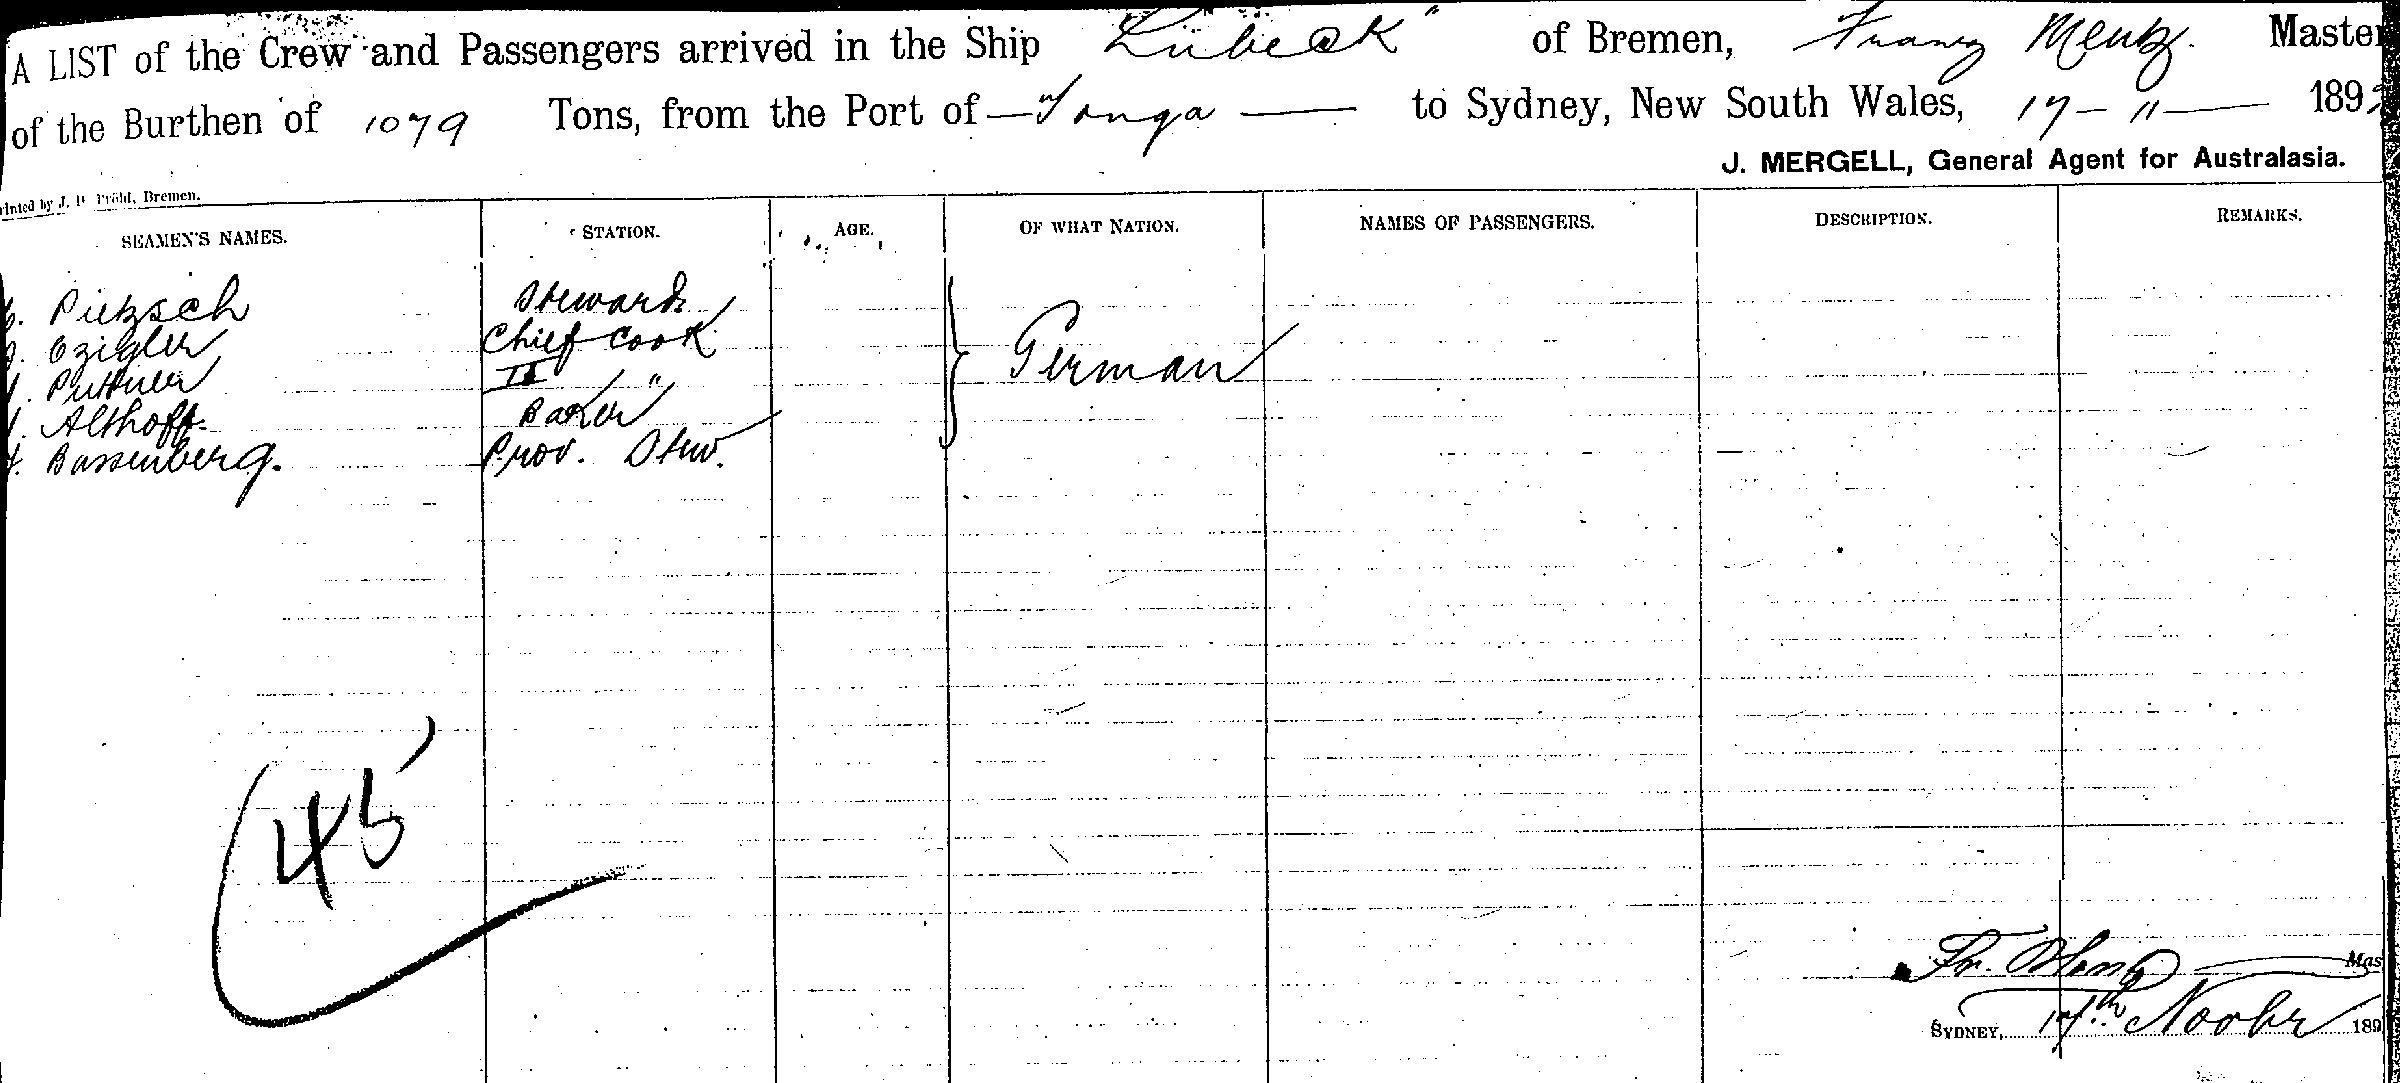 A LIST of the Crew and Passengers arrived in the Ship "Lübeck" of Bremen, Franz Mentz. Master
of the Burthen of 1079 Tons, from the Port of — Tonga — to Sydney, New South Wales, 17 – 11 — 189
J. MERGELL, General Agent for Australasia.
rinted by J. D. Pröhl, Bremen.
SEAMEN'S NAMES. STATION. AGE. OF WHAT NATION. NAMES OF PASSENGERS. DESCRIPTION. REMARKS.
Pietzsch Steward
Czigler Chief Cook German
Püttner II "
Althoff. Baker
Bassenberg. Prov. Stew.
45
Fr. Mentz Mas
SYDNEY, 17th Novbr 189